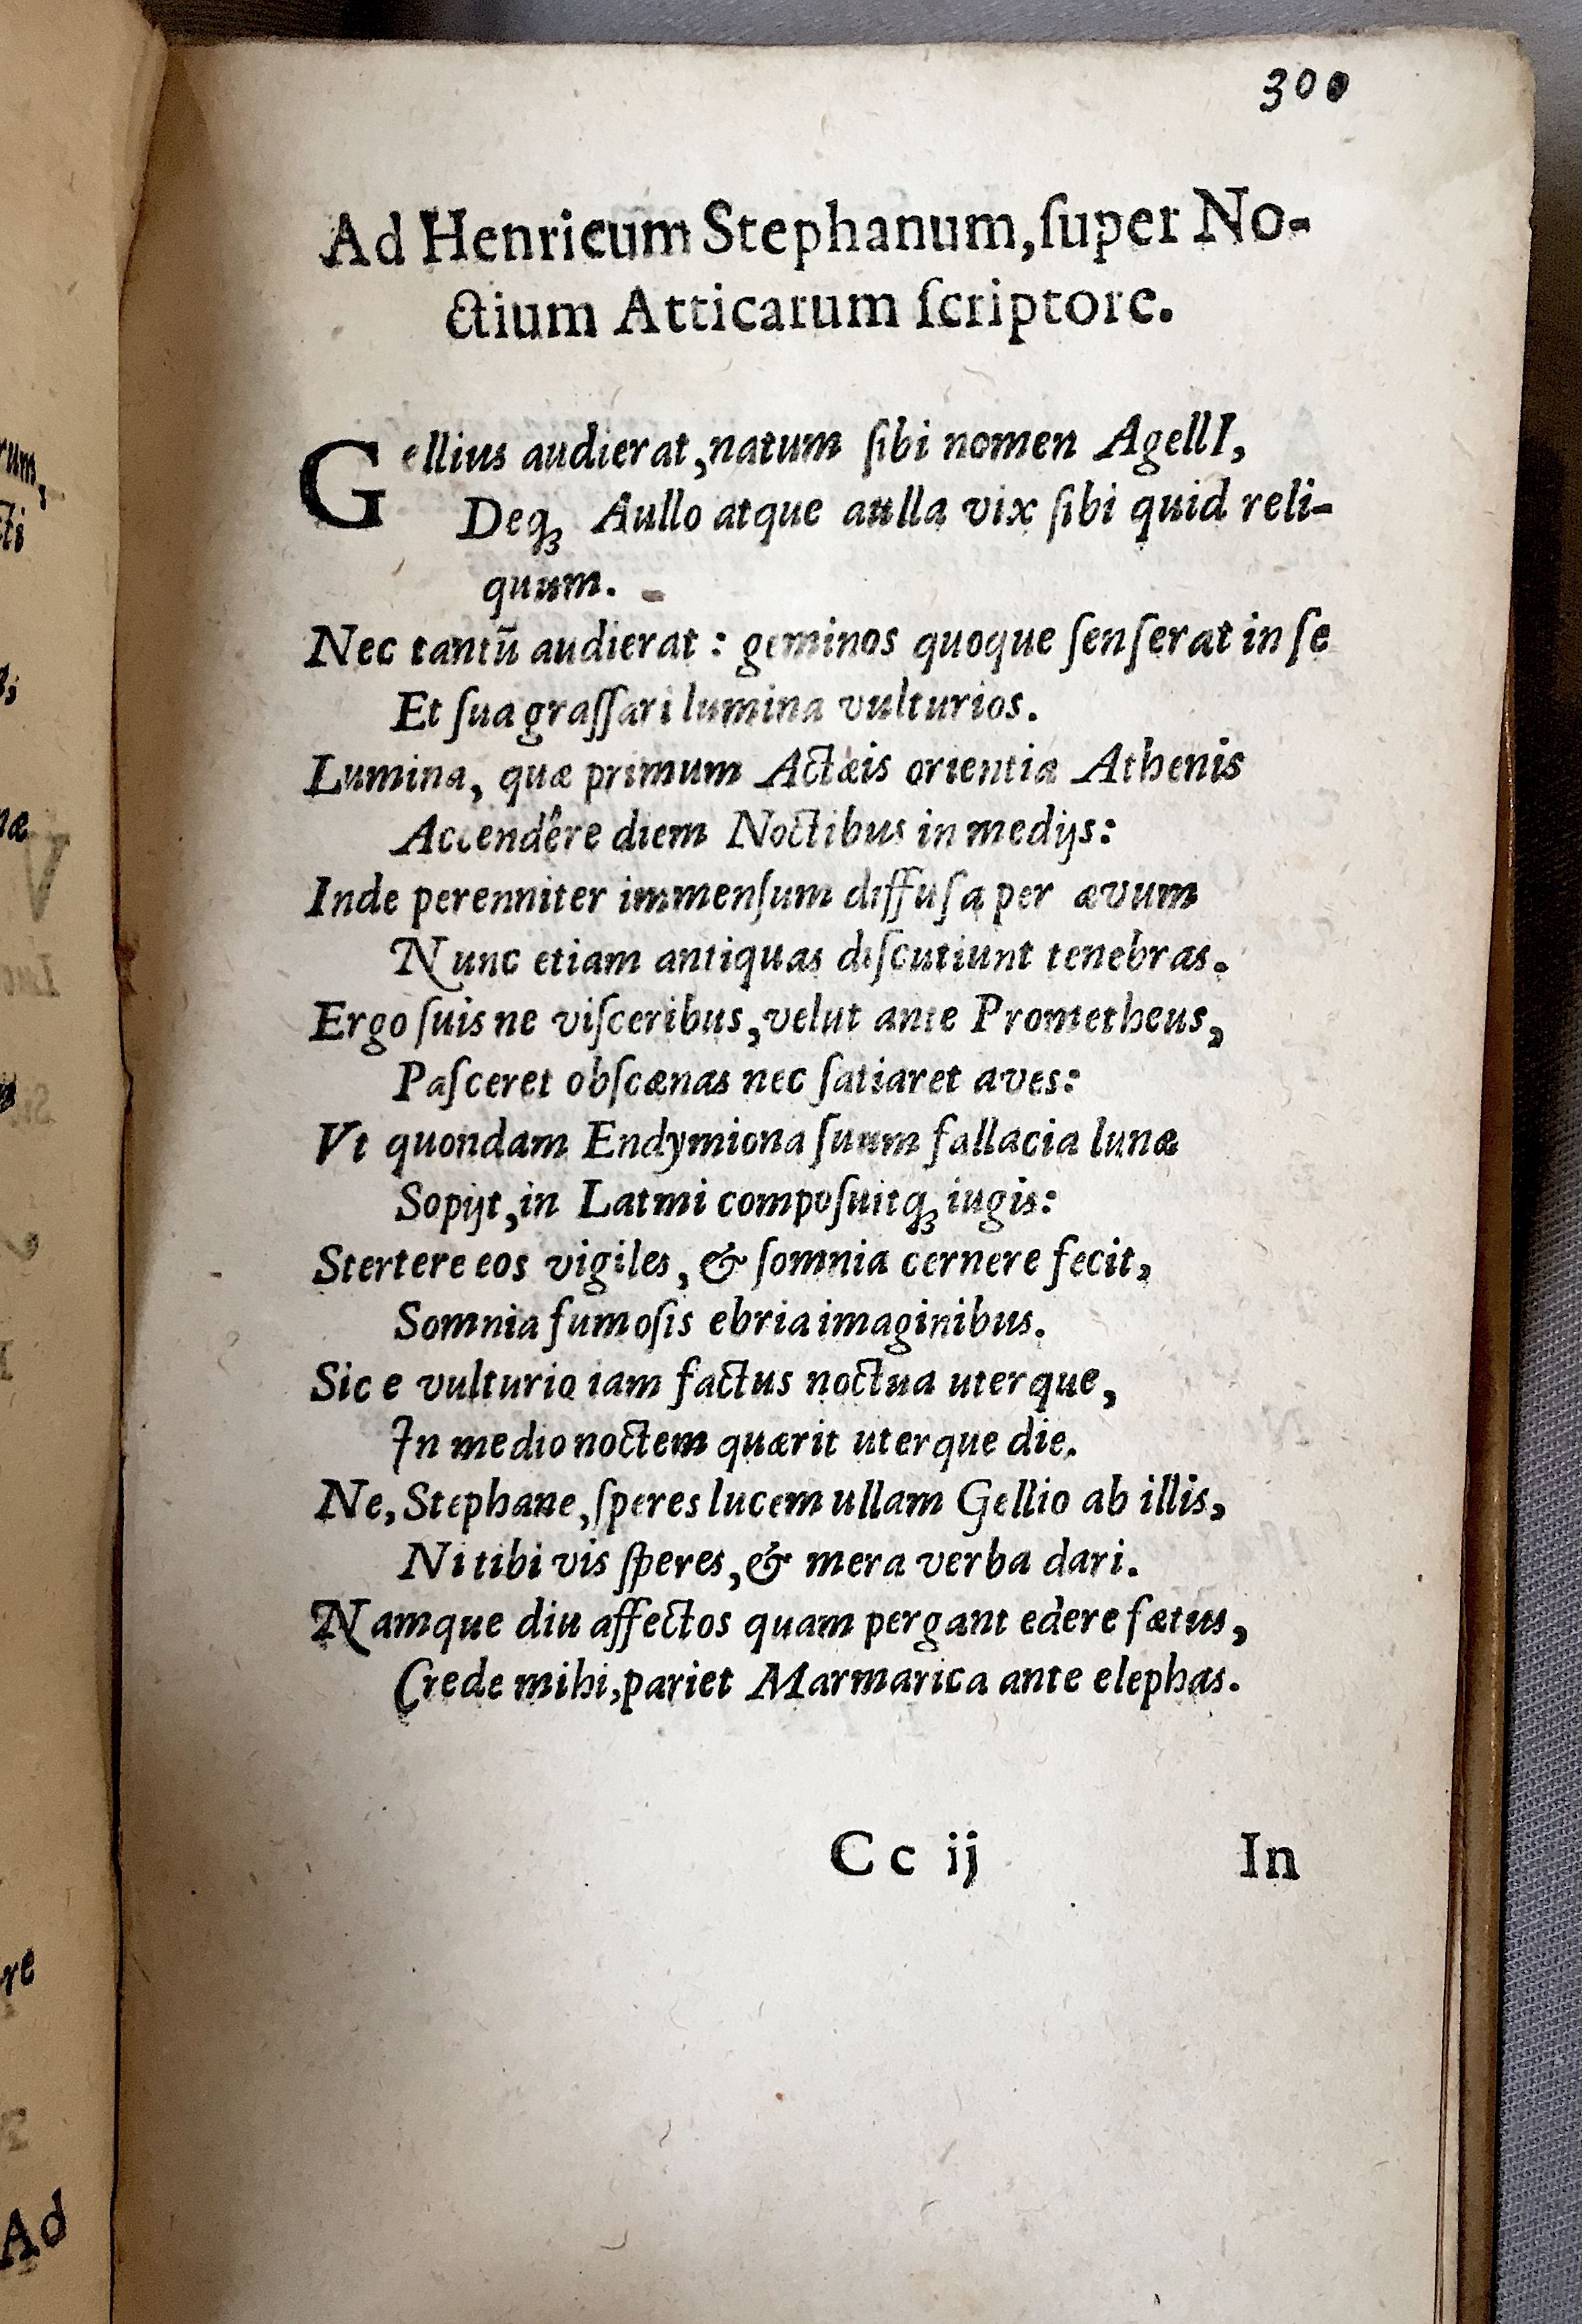 300
Ad Henricum Stephanum, ſuper No-
ctium Atticarum ſcriptore.
Gellius audierat, natum ſibi nomen AgellI,
Deq́ꝫ Aullo atque aulla vix ſibi quid reli-
quum.
Nec tantũ audierat : geminos quoque ſenſerat in ſe
Et ſua graſſari lumina vulturios.
Lumina, quæ primum Actæis orientia Athenis
Accendêre diem Noctibus in medijs:
Inde perenniter immenſum diffuſa per ævum
Nunc etiam antiquas diſcutiunt tenebras.
Ergo ſuis ne viſceribus, velut ante Prometheus,
Paſceret obſcænas nec ſatiaret aves:
Vt quondam Endymiona ſuum fallacia lunæ
Sopijt, in Latmi compoſuitqꝫ iugis:
Stertere eos vigiles, & ſomnia cernere fecit,
Somnia fumoſis ebria imaginibus.
Sic e vulturio iam factus noctua uterque,
In medio noctem quærit uterque die.
Ne, Stephane, ſperes lucem ullam Gellio ab illis,
Ni tibi vis ſperes, & mera verba dari.
Namque diu affectos quam pergant edere fætus,
Crede mihi, pariet Marmarica ante elephas.
Cc ij
In
rum,
næ
re
Ad